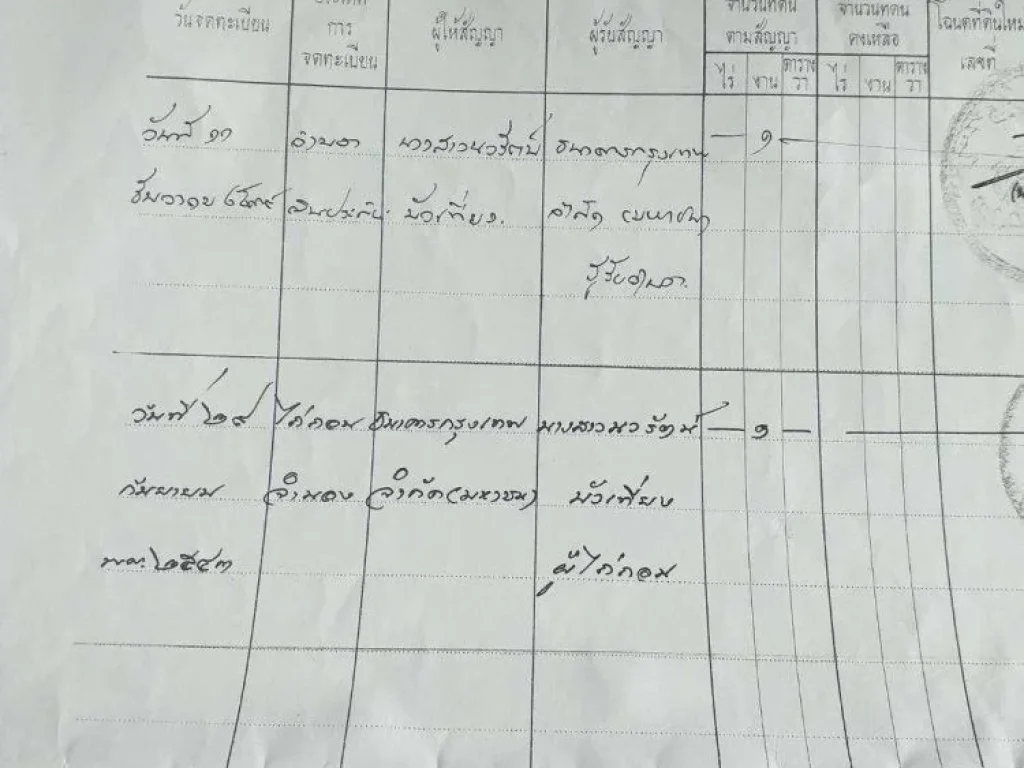 วันจดทะเบียน
การ
จดทะเบียน
ผู้ให้สัญญา
ผู้รับสัญญา
จำนวนที่ดิน
ตามสัญญา
จำนวนที่ดิน
คงเหลือ
โฉนดที่ดินใหม่
เลขที่
ไร่ งาน ตาราง วา ไร่ งาน ตาราง วา
วันที่ ๑๓ จำนอง นางสาวนวรัตน์ ธนาคารกรุงเทพ — ๑ —
ธันวาคม บัวเที่ยง. จำกัด (มหาชน)
ผู้รับจำนอง.
วันที่ ๒๙ ไถ่ถอน ธนาคารกรุงเทพ นางสาวนวรัตน์ — ๑ —
กันยายน จำนอง จำกัด (มหาชน) บัวเที่ยง
พ.ศ. ๒๕๔๓ ผู้ไถ่ถอน